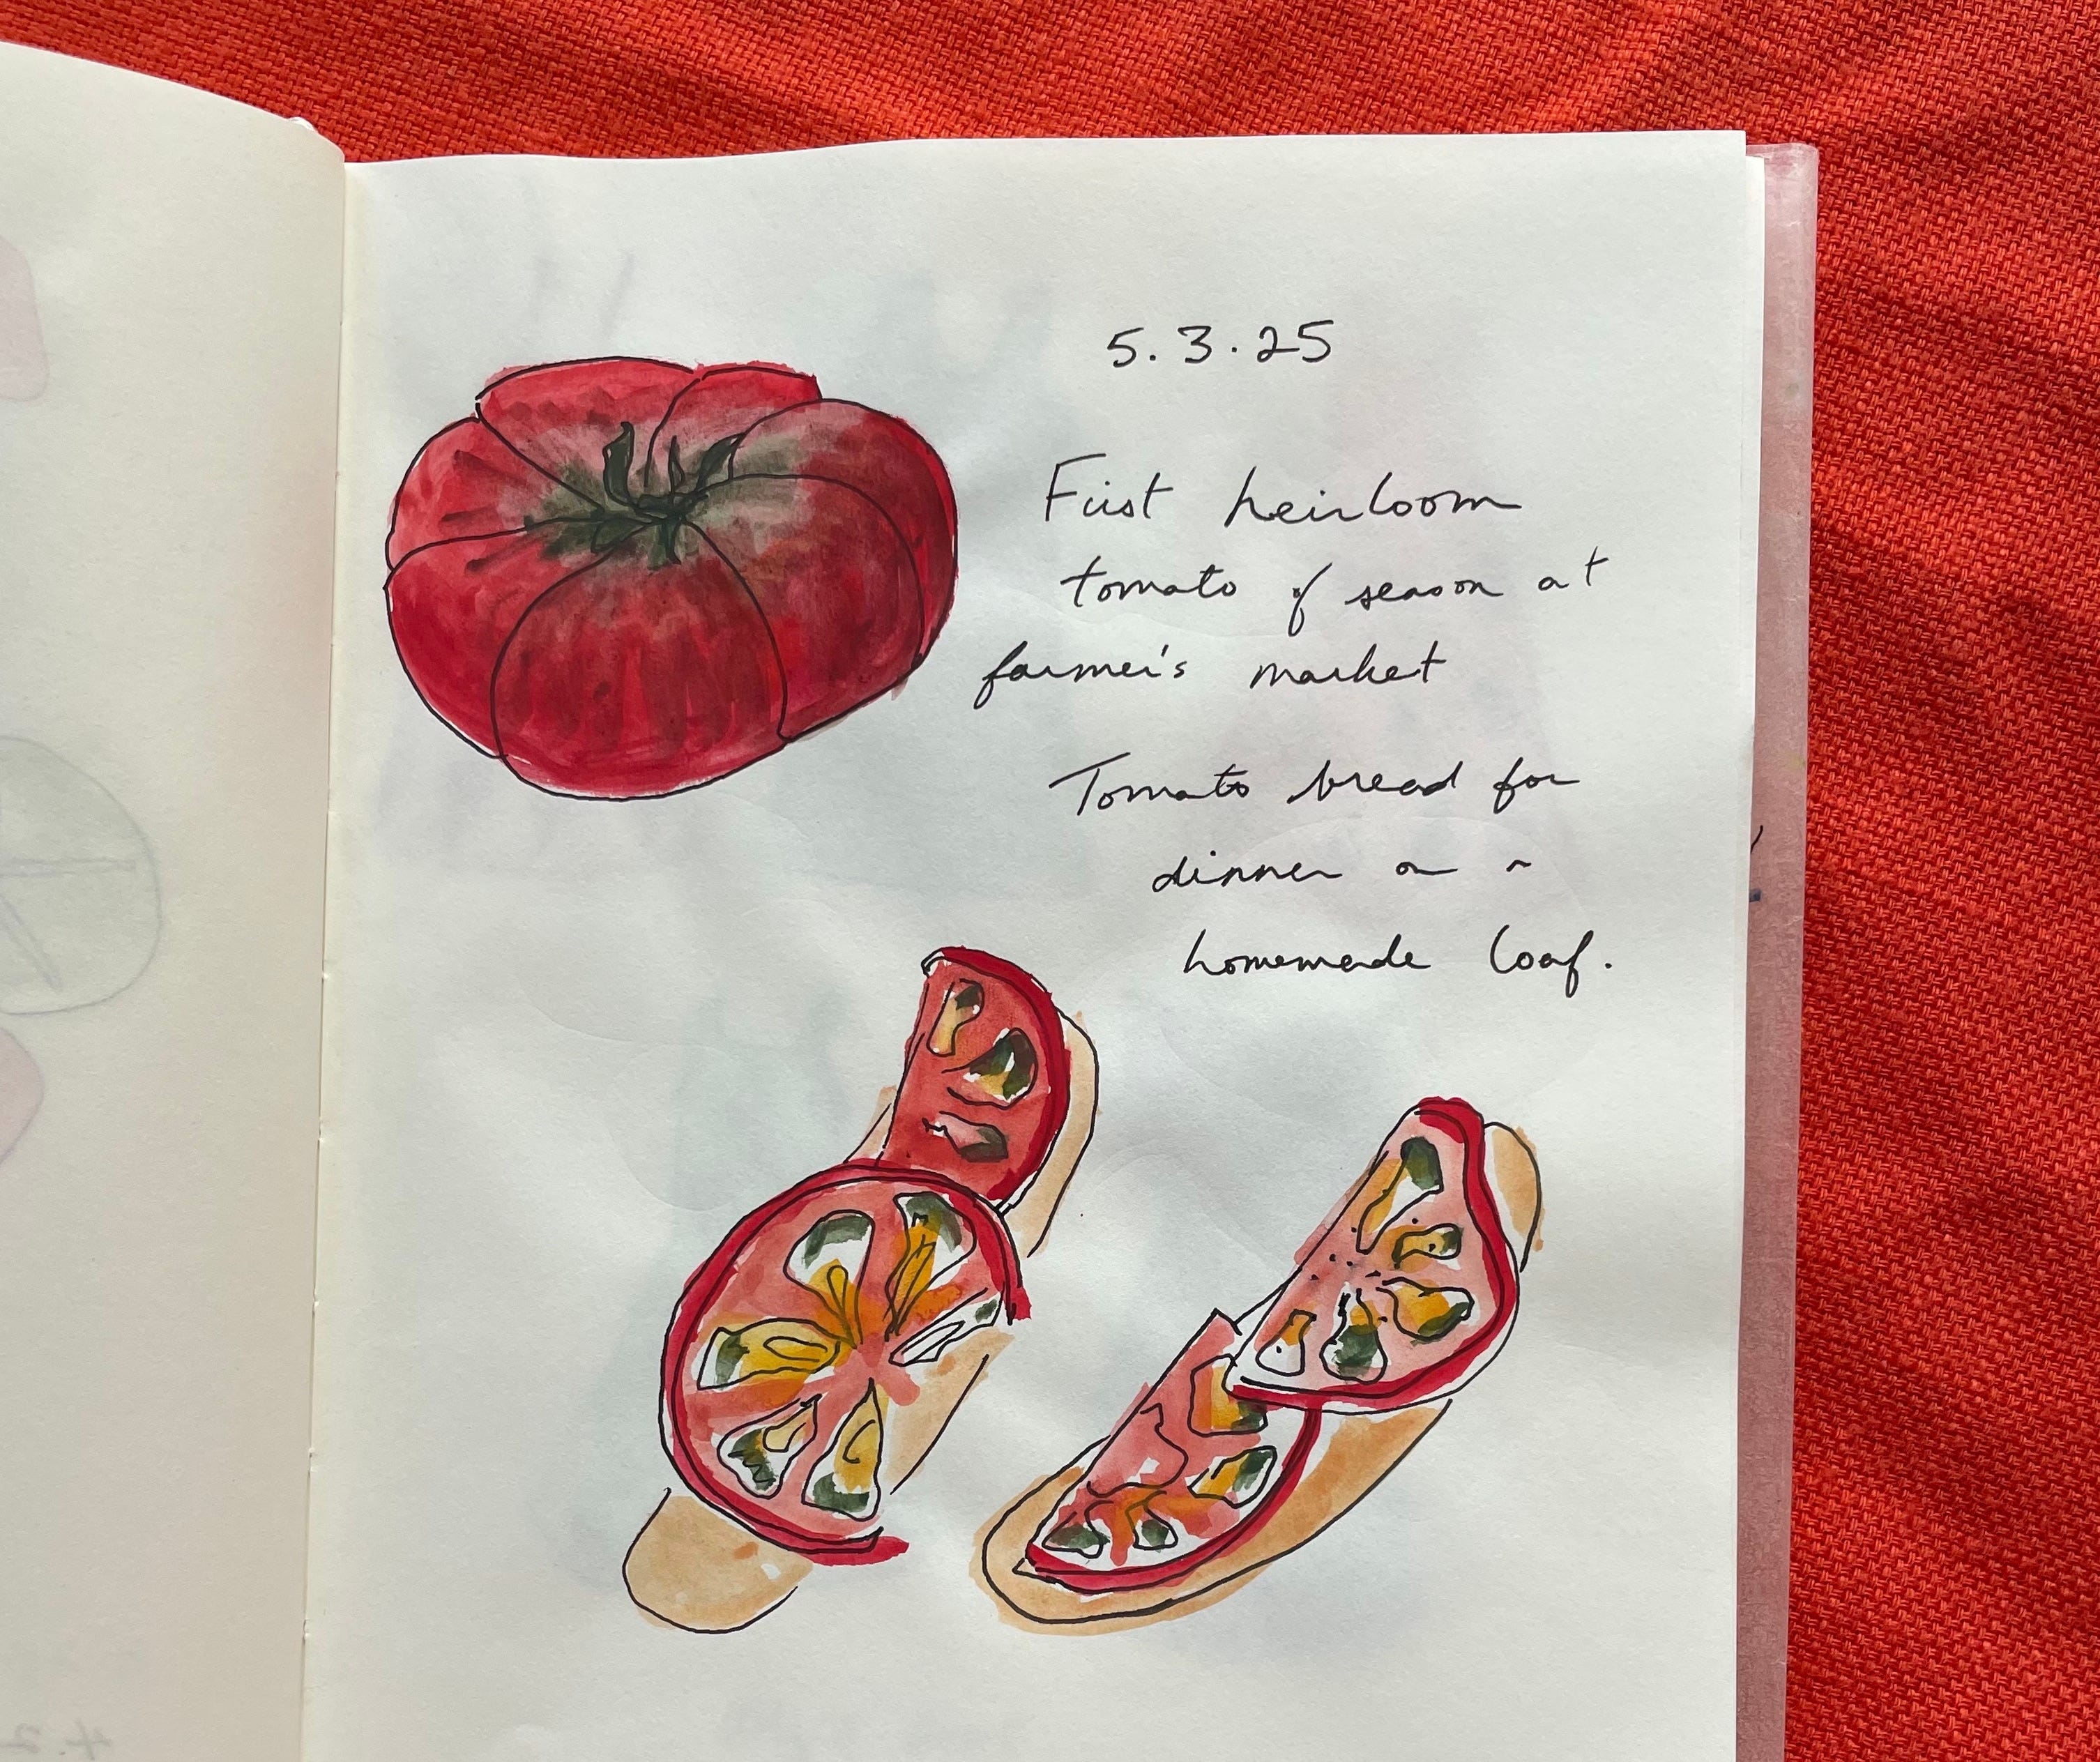 5.3.25
First heirloom
tomato of season at
farmer's market
Tomato bread for
dinner on a
homemade loaf.